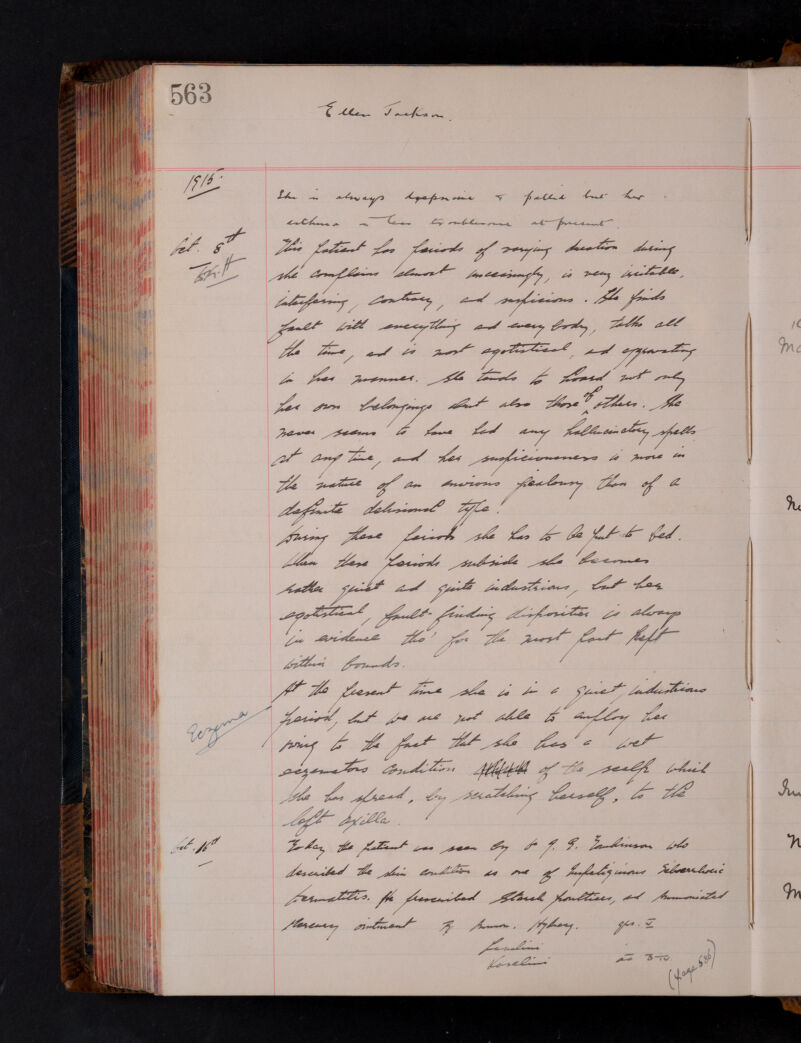 563
Ellen Jackson.
1915.
She is always dyspnoeic & pallid but her
asthma is less troublesome at present.
Oct. 8th
This patient has periods of varying duration during
she complains almost unceasingly, is very irritable,
interfering, contrary, and suspicious. She finds
fault with everything and everybody, talks all
the time, and is most egotistical, and aggravating
in her manner. She tends to hoard not only
her own belongings but also those of others. She
never seems to have had any hallucinatory spells
at any time, and her suspiciousness is more in
the nature of an envious jealousy than of a
definite delusional type.
During these periods she has to be put to bed.
When these periods subside she becomes
rather quiet and quite industrious, but her
egotistical, fault-finding disposition is always
in evidence tho' for the most part kept
within bounds.
At the present time she is in a quiet, industrious
Eczema
period, but we are not able to employ her
owing to the fact that she has a wet
eczematous condition of the scalp which
she has spread, by scratching herself, to the
left axilla.
Oct.
Today the patient was seen by Dr J. G. Tomkinson who
described the skin condition as one of Impetiginous Seborrhoeic
Dermatitis. He prescribed Starch poultices, and Ammoniated
Mercury ointment Ammon. Hydrarg. grs. V
Lanolini
Vaselini
(Page 586)